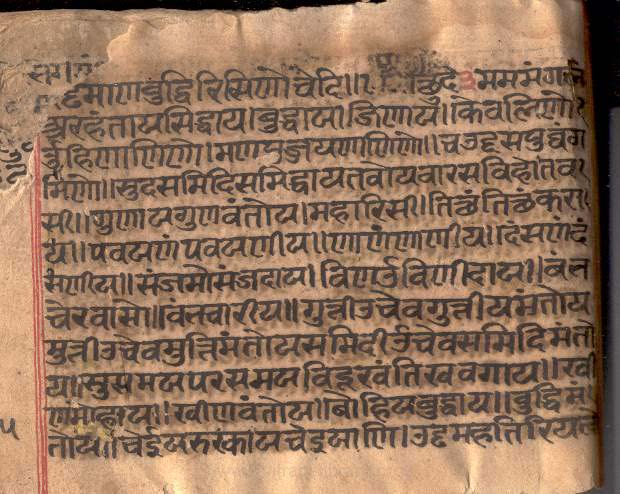 दमाणबुद्धिरिसिणो चेदि॥ मम मंगलं
अरहंतायसिद्धाय।बुद्धायजिणाय।केवलिणो
हिणाणिणो।मणपज्जयणाणिणो।चउद्दसपुव्वंग
मिणो॥सुदसमिदिसमिद्धायतवोयवारसविहो।तव
सी॥गुणायगुणवंतोय।महारिसी।तित्थंतित्थंकरा
य॥पवयणंपवयणीय॥णाणंणाणीय।दंसणंदं
सणीय॥संजमोसंजदाय।विणउविणीदाय॥वंभ
चेरवासो॥वंभचारीय॥गुत्तीउचेवगुत्तीयमंतोय
मुत्तीउचेवमुत्तिमंतोयसमिदीउचेवसमिदिमंतो
य॥सुसमयपरसमयविदुखंतिखवगाय॥खी
णमोहाय॥खीणवंतोय।बोहियबुद्धाय॥बुद्धिमं
तोय॥चेईयरुरकायचेइयाणि।उद्दमहतिरियलो
५